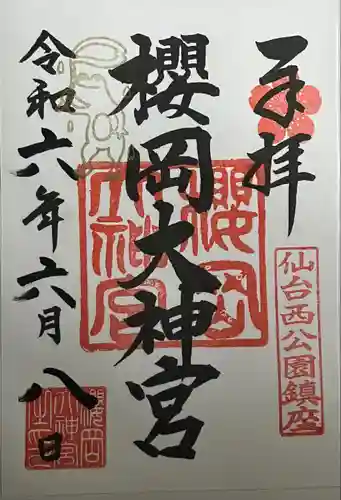 奉拝
仙台西公園鎮座
櫻岡大神宮
櫻岡神宮
令和六年六月八日